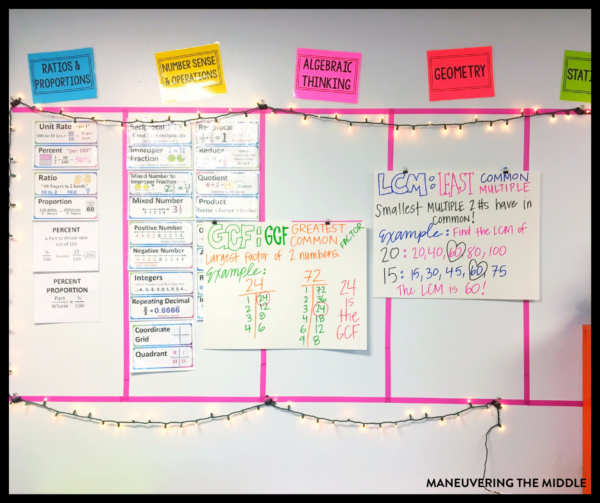 RATIOS &
PROPORTIONS
NUMBER SENSE
& OPERATIONS
ALGEBRAIC
THINKING
GEOMETRY
STATI
Unit Rate
Percent
Ratio
Proportion
PERCENT
a Part to Whole ratio
out of 100
PERCENT
PROPORTION
Part
Whole
%
100
Reciprocal
Improper
Fraction
Mixed Number to
Improper Fraction
Mixed Number
Positive Number
Negative Number
Integers
Repeating Decimal
2/3 = 0.6666
Coordinate
Grid
Quadrant
Reciprocal
Reduce
Quotient
Product
Factor x Factor = Product
GCF: GCF GREATEST
COMMON
FACTOR
Largest factor of 2 numbers.
Example:
24
1 24
2 12
3 8
4 6
72
1 72
2 36
3 24
4 18
6 12
9 8
24
is
the
GCF
LCM: LEAST COMMON
MULTIPLE
Smallest MULTIPLE 2 #s have in
Common!
Example: Find the LCM of
20: 20, 40, 60, 80, 100
15: 15, 30, 45, 60, 75
The LCM is 60!
MANEUVERING THE MIDDLE